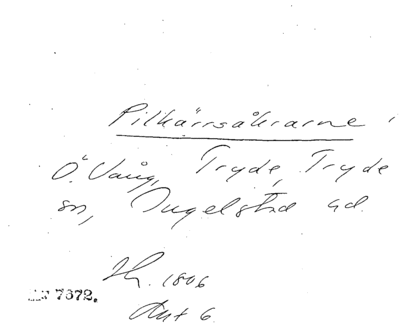 Pilkärrsåkrarne
Ö. Vång, Tryde, Tryde
sn, Ingelstad hd.
1806
7672.
Akt 6